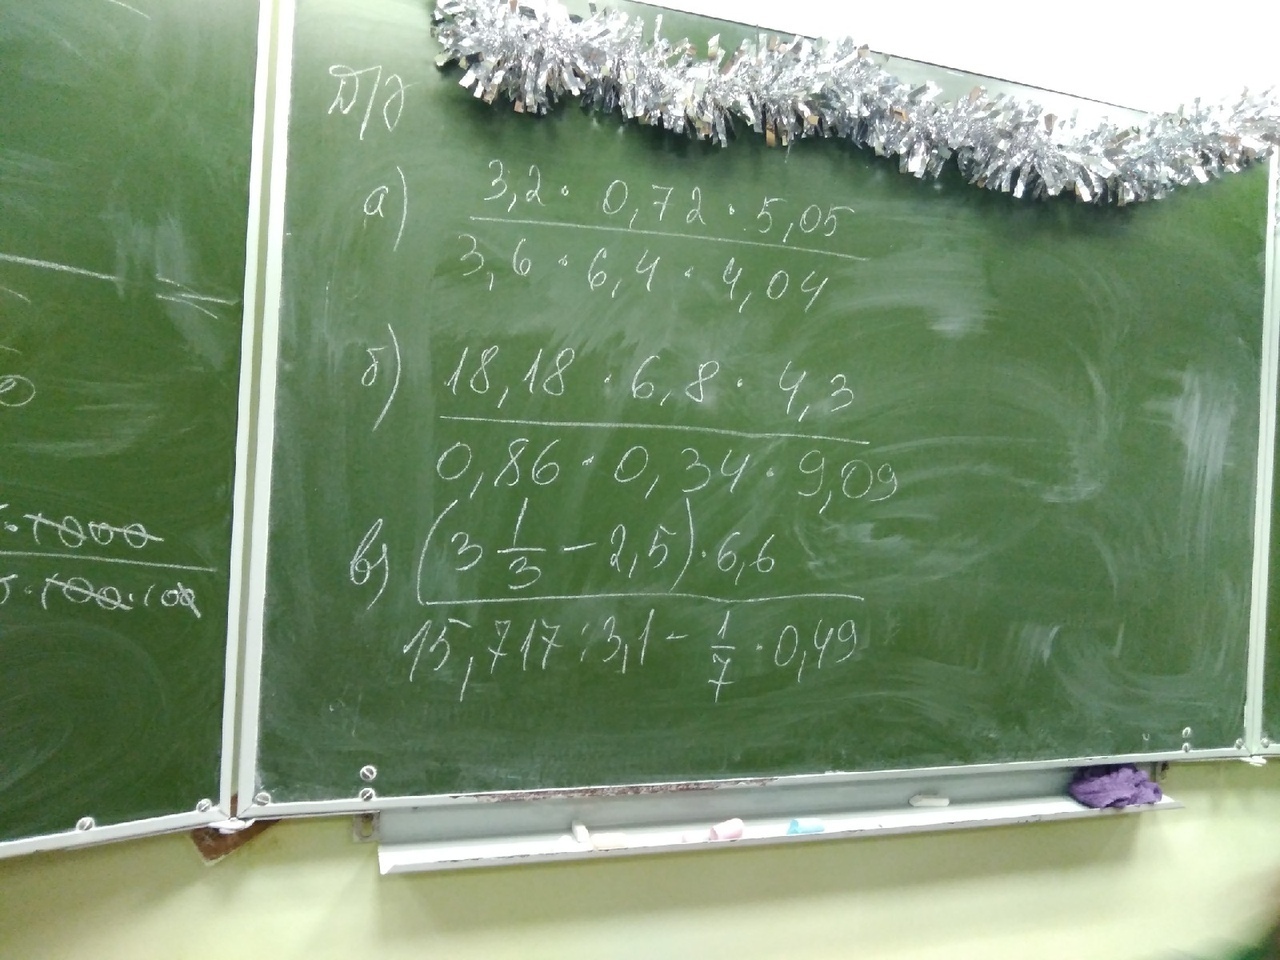 Д/з
а) 3,2 · 0,72 · 5,05
3,6 · 6,4 · 4,04
б) 18,18 · 6,8 · 4,3
0,86 · 0,34 · 9,09
в) (3 1/3 - 2,5) · 6,6
15,717 : 3,1 - 1/7 · 0,49
· 1000
· 100 · 100